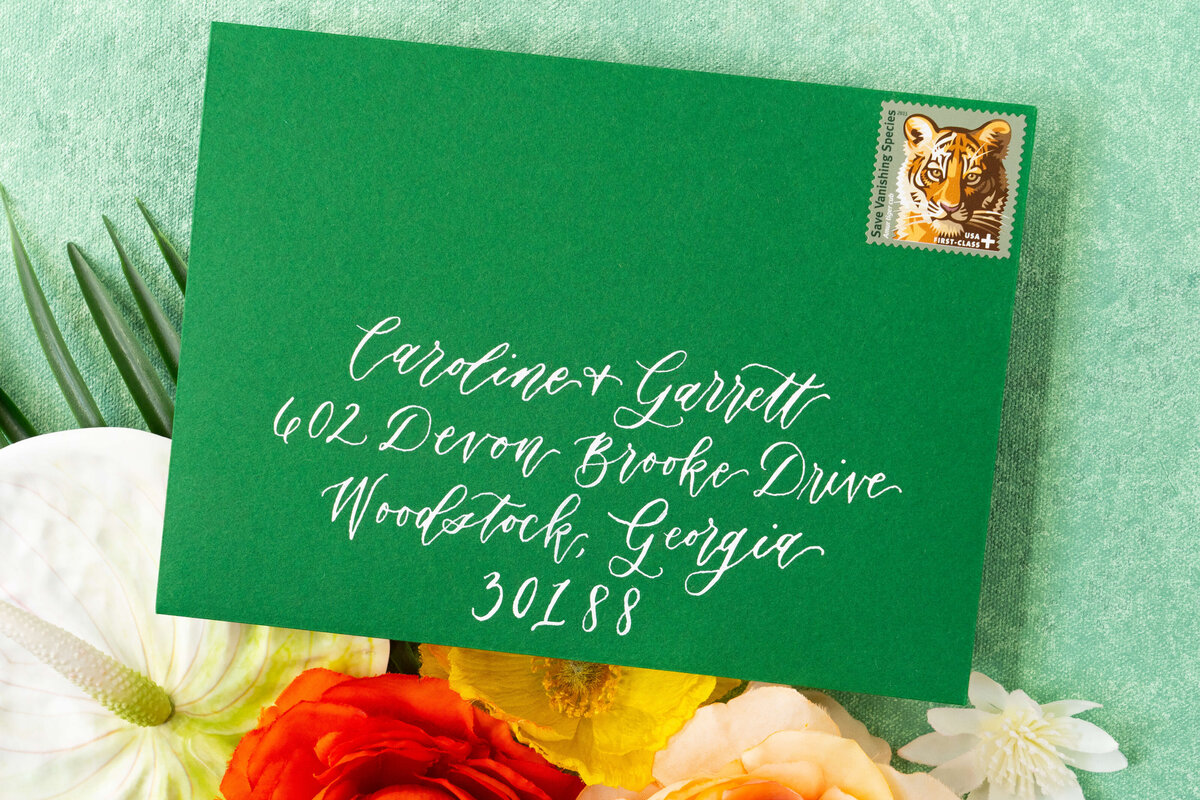 Save Vanishing Species
Amur tiger cub
2011
USA
FIRST-CLASS+
Caroline + Garrett
602 Devon Brooke Drive
Woodstock, Georgia
30188